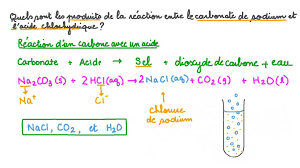 Quels sont les produits de la réaction entre le carbonate de sodium et
l'acide chlorhydrique ?
Réaction d'un carbone avec un acide
Carbonate + Acide → Sel + dioxyde de carbone + eau
Na₂CO₃(s) + 2HCl(aq) → 2NaCl(aq) + CO₂(g) + H₂O(l)
Na⁺ Cl⁻ chlorure
de sodium
NaCl, CO₂, et H₂O